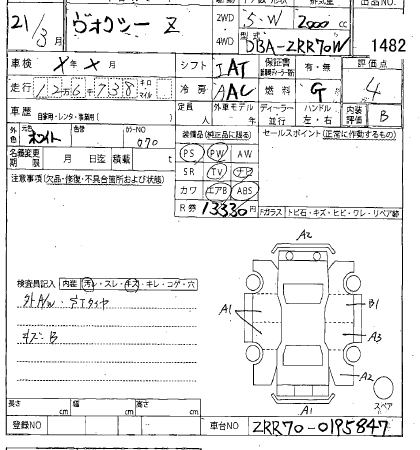 2WD 5・W 2000cc
出品NO.
21/3月 ヴォクシー Z
4WD 型式 DBA-ZRR70W 1482
車検 X年X月 シフト IAT 保証書 有・無 評価点 4
走行 12万6738 キロ マイル 冷房 AAC 燃料 G 内装評価 B
車歴 自家用・レンタ・事業用( ) 定員 人 外車モデル 年 ディーラー 並行 ハンドル 左・右
外色 元色 ホワイト 色替 カラーNO 070
装備品(純正品に限る) セールスポイント(正常に作動するもの)
名義変更期限 月 日迄 積載 t
PS PW AW
SR TV ナビ
注意事項(欠品・修復・不具合箇所および状態)
カワ エアB ABS
R券 13330円
Fガラス トビ石・キズ・ヒビ・ワレ・リペア跡
A2
検査員記入 内装 汚レ・スレ・キズ・キレ・コゲ・穴
社外A/W・
キズB
A1 B1
A3
A2
A1
スペア
長さ cm 幅 cm 高さ cm
登録NO 車台NO ZRR70-0195847